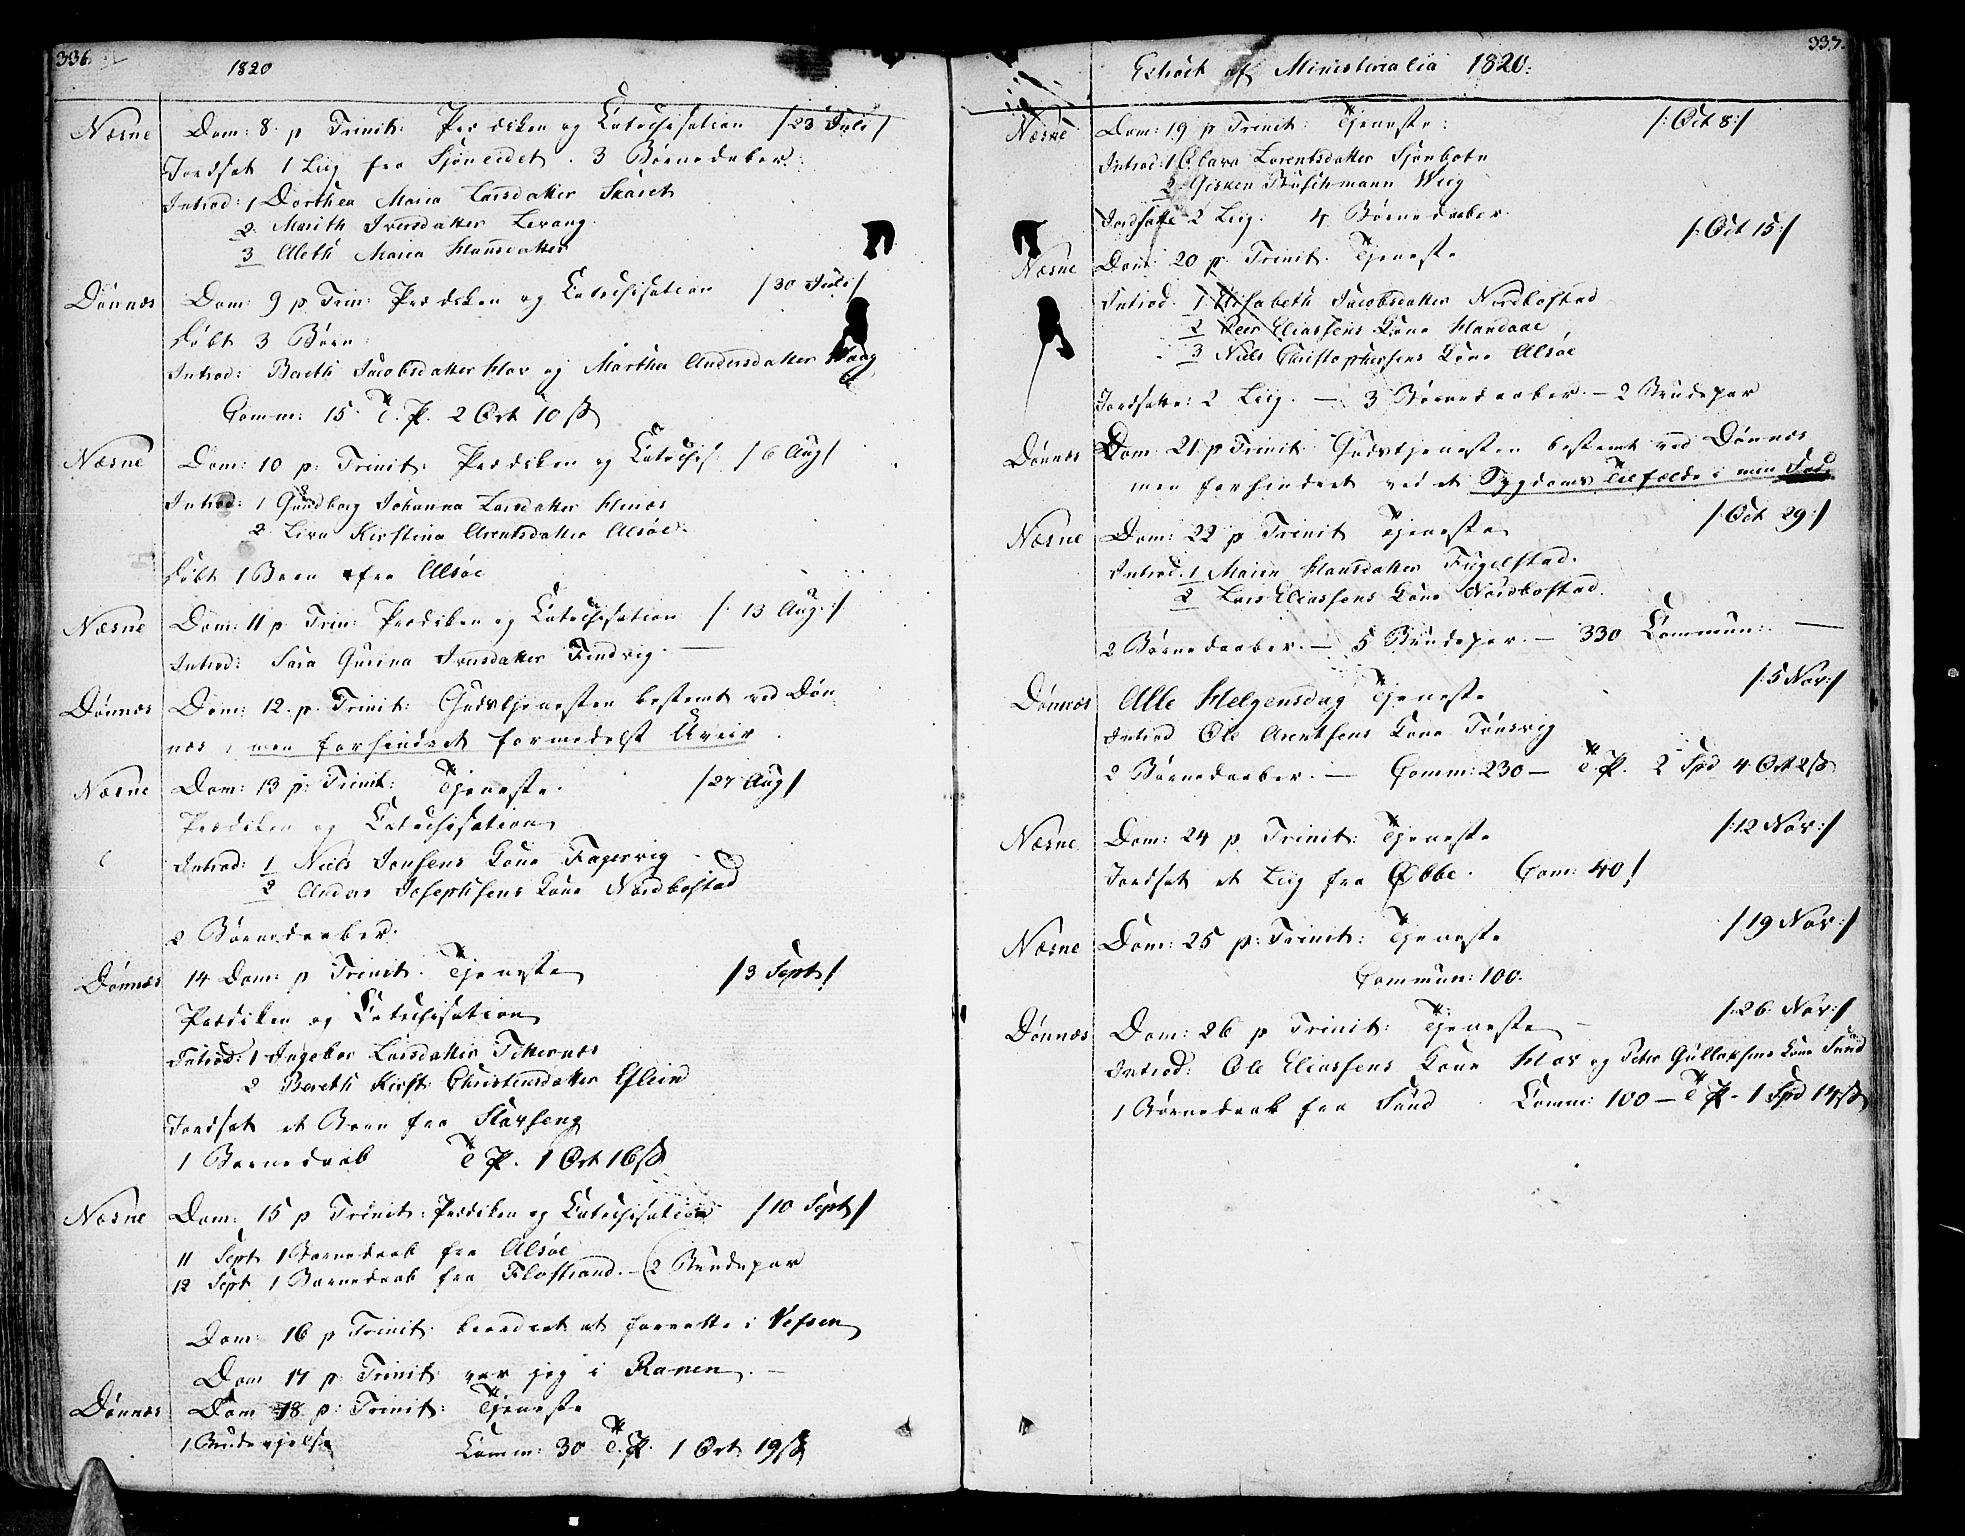 336
1820
Næsne Dom: 8. p Trinit: Prædiken og Catechisation /23 Juli/
Jordsat 1 Liig fra Sjoneidet. 3 Børnedaaber.
Introd: 1 Dorthea Maria Larsdatter Skaret
2 Marith Iversdatter Levang.
3 Aleth Maria Hansdatter
Dønnæs Dom: 9 p Trin: Prædiken og Catechisation /30 Juli/
Døbt 3 Børn
Introd: Bereth Jacobsdatter Hov og Martha Andersdatter Waag
Comm: 15. T. P. 2 Ort 10 ß
Næsne Dom: 10 p: Trinit: Prædiken og Catechis /6 Aug/
Introd: 1 Gundborg Johanna Larsdatter Hemnæs
2. Liva Kirstina Arentsdatter Alsøe.
Døbt 1 Barn fra Alsøe
Næsne Dom: 11 p Trin: Prædiken og Catechisation /: 13 Aug:/
Introd: Sara Gurina Iversdatter Findvig. —
Dønnæs Dom: 12. p. Trinit: Gudstjenesten bestemt ved Døn
næs, men forhindret formedelst Uveir.
Næsne Dom: 13 p: Trinit: Tjeneste. /27 Aug/
Prædiken og Catechisation
Introd: 1 Niels Jonsens Kone Fagervig
2 Anders Josephsens Kone Nordbostad
2 Børnedaaber.
Dønnæs 14 Dom: p Trinit. Tjeneste /3 Sept/
Prædiken og Catechisation
Introd: 1 Ingebor Larsdatter Titternæs
2 Bereth Kirst: Christensdatter Glein
Jordsat et Barn fra Slavseng
1 Barnedaab T. P. 1 Ort 16 ß
Næsne Dom: 15 p Trinit: Prædiken og Catechisation /10 Sept/
11 Sept 1 Barnedaab fra Alsøe
12 Sept 1 Barnedaab fra Flostrand. — (2 Brudepar
Dom: 16 p Trinit: beordret at forrette i Vefsen
Dom 17 p Trinit: var jeg i Ranen. —
Dønnæs Dom 18 p: Trinit: Tjeneste
1 Brudevielse Comm: 30 T. P. 1 Ort 19 ß
337.
Extract af Ministerialia 1820:
Næsne Dom: 19 p Trinit: Tjeneste: /: Oct 8:/
Introd: 1 Clara Lorentsdatter Sjonbotn
2 Gisken Buschmann Wiig
Jordsatte 2 Liig. 4 Børnedaaber.
/: Oct 15:/
Næsne Dom: 20 p. Trinit. Tjeneste
Introd. 1 Elisabeth Jacobsdatter Nordbostad
2 Peer Eliassens Kone Handaae
3 Niels Christophersens Kone Alsøe
Jordsatte: 2 Liig. — 3 Børnedaaber. — 2 Brudepar
Dønnæs Dom 21 p Trinit Gudstjenesten bestemt ved Dønnæs
men forhindret ved et Sygdoms Tilfælde i min Fod.
Næsne Dom: 22 p Trinit Tjeneste /: Oct 29:/
Introd. 1 Maren Hansdatter Fugelstad.
2 Lars Eliassens Kone Nordbostad.
2 Børnedaaber. — 5 Brudepar. — 330 Commun: —
Dønnæs Alle Helgensdag Tjeneste /: 5 Nov:/
Introd Ole Arentsens Kone Tønsvig
2 Børnedaaber. — Comm: 230 — T. P. 2 Spd 4 Ort 2 ß
Næsne Dom: 24 p Trinit: Tjeneste /:12 Nov:/
Jordsat et Liig fra Øbbe. Com: 40!
Næsne Dom: 25 p: Trinit: Tjeneste /19 Nov:/
Commun: 100.
Dønnæs Dom: 26 p Trinit: Tjeneste — /:26 Nov:/
Introd: Ole Eliassens Kone Hov og Peter Gullaksens Kone Sund
1 Børnedaab fra Sund Comm: 100 — T. P. 1 Spd 14 ß